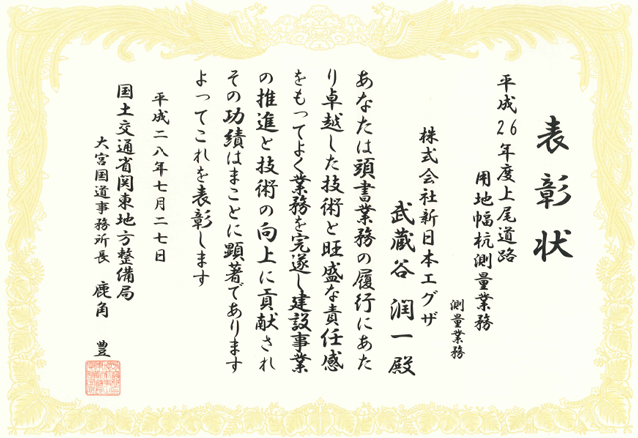 表彰状
平成26年度上尾道路
用地幅杭測量業務
測量業務
株式会社新日本エグザ
武蔵谷 潤一殿
あなたは頭書業務の履行にあた
り卓越した技術と旺盛な責任感
をもってよく業務を完遂し建設事業
の推進と技術の向上に貢献され
その功績はまことに顕著であります
よってこれを表彰します
平成二八年七月二七日
国土交通省関東地方整備局
大宮国道事務所長 鹿角 豊